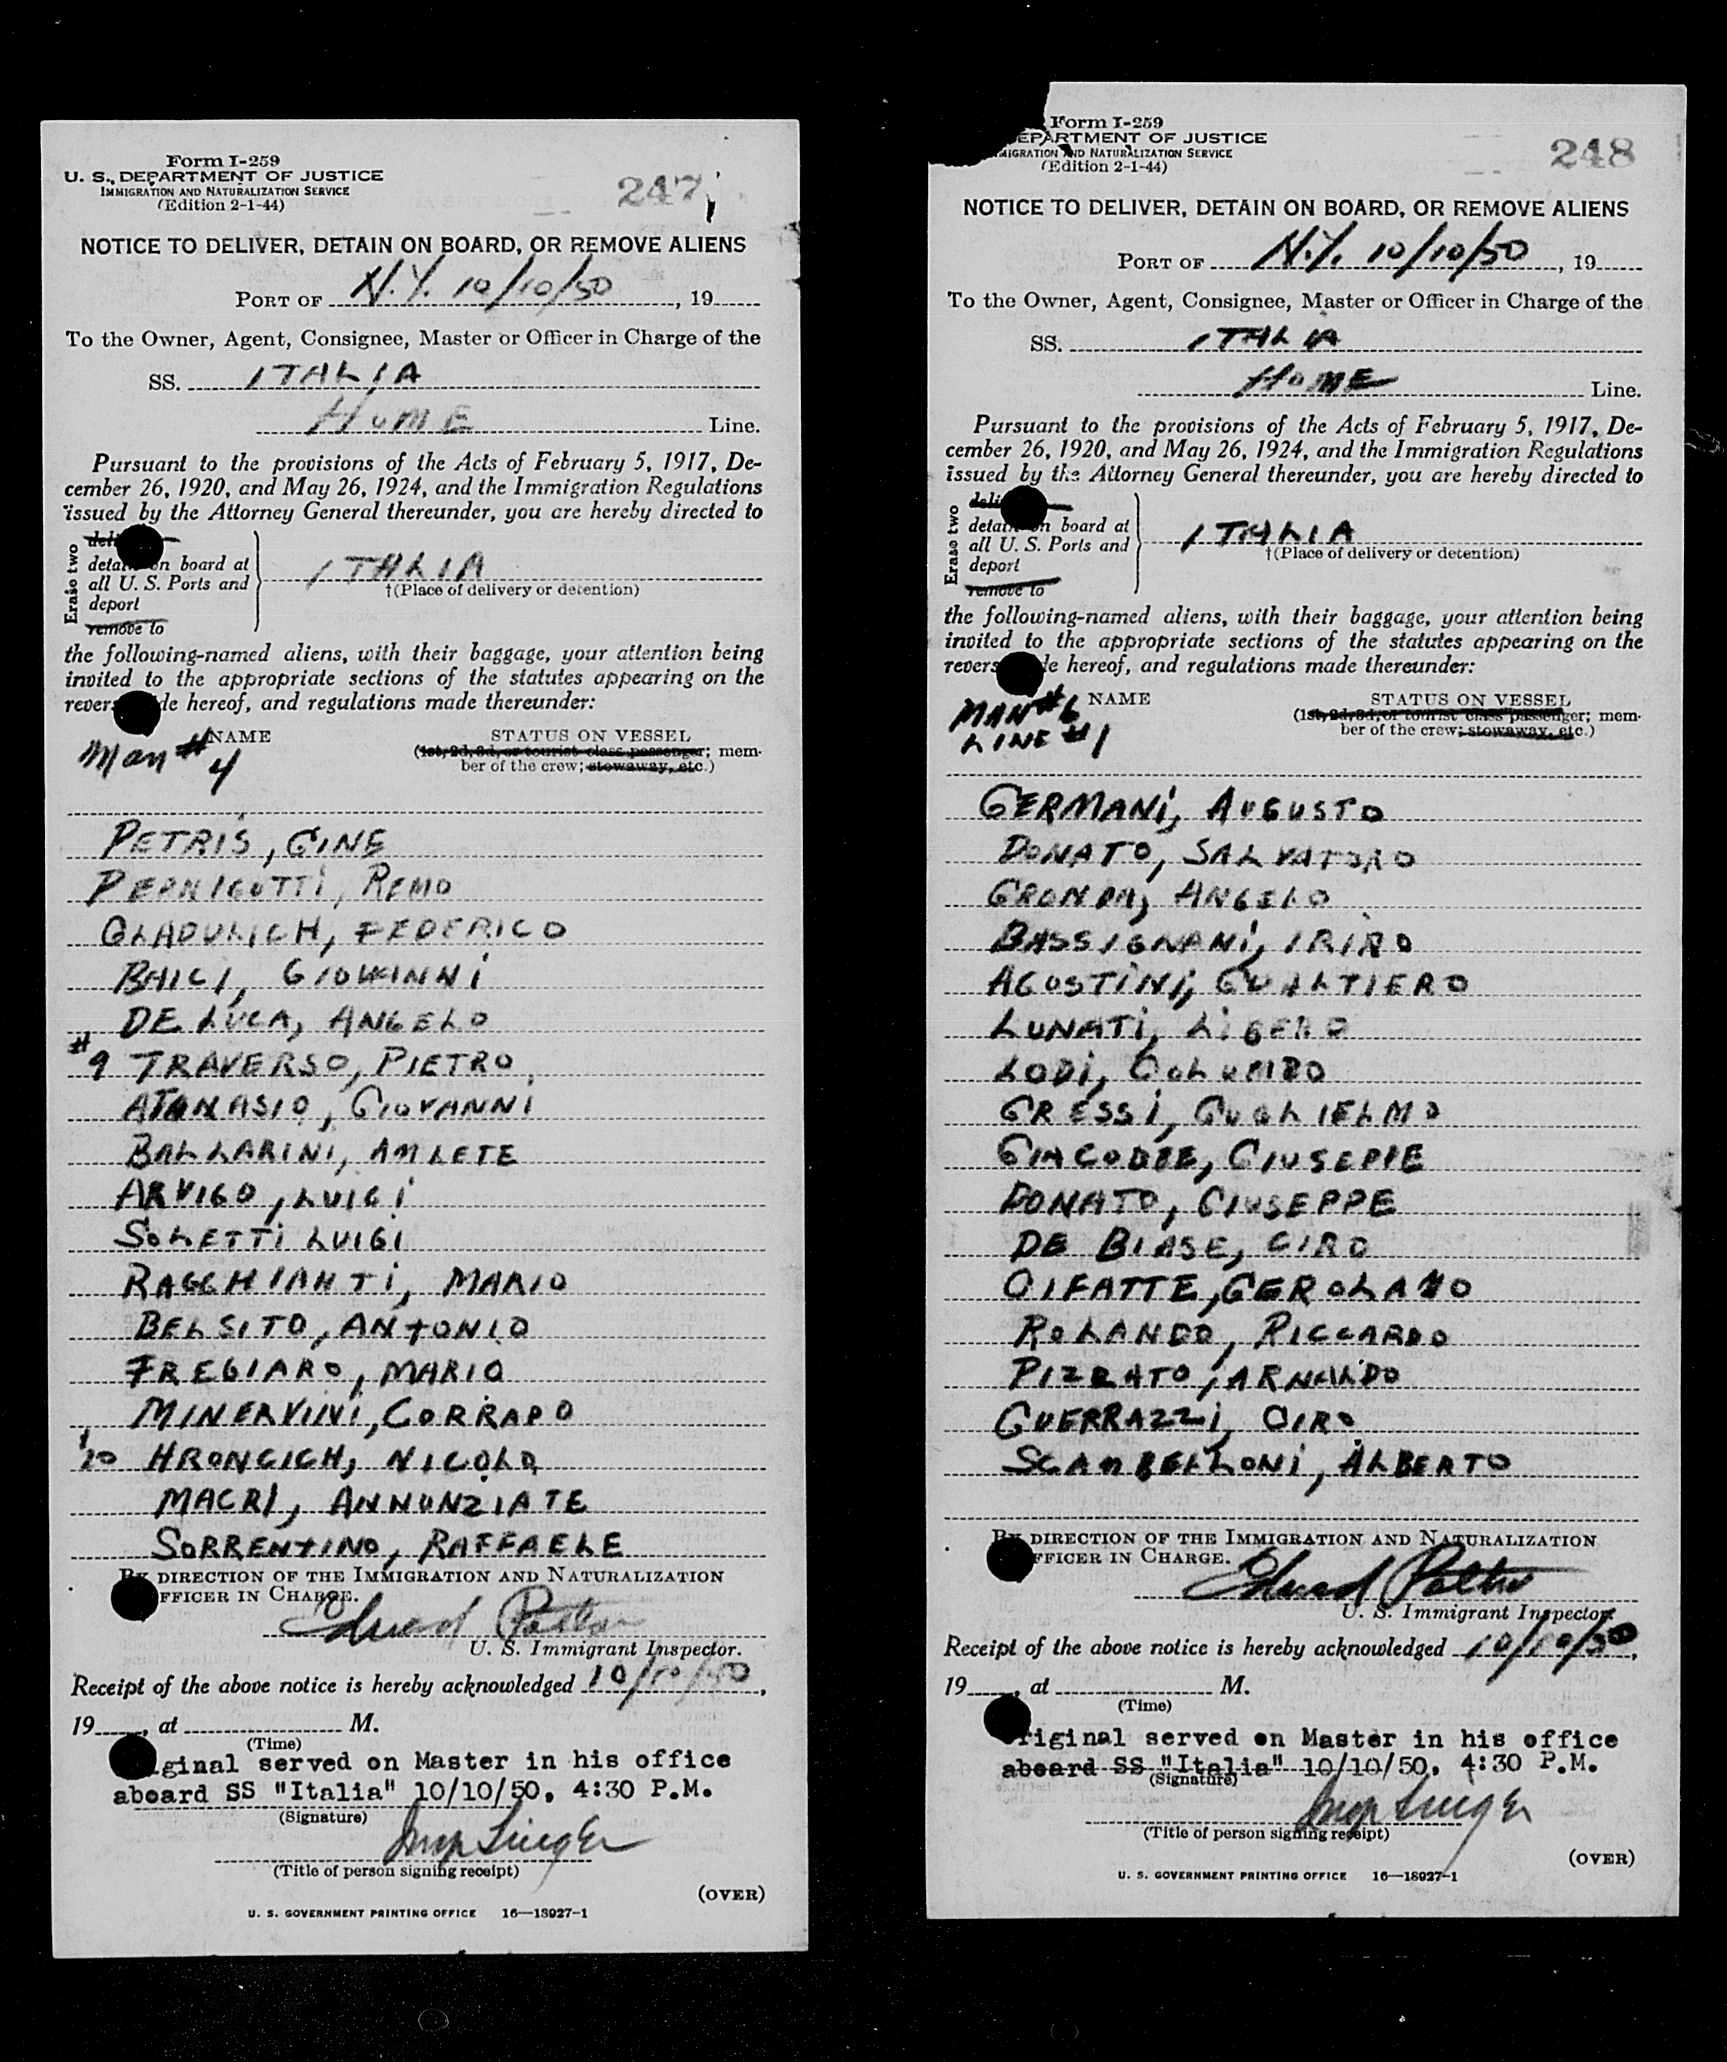 Form I-259
U. S. DEPARTMENT OF JUSTICE
IMMIGRATION AND NATURALIZATION SERVICE
(Edition 2-1-44)
247
NOTICE TO DELIVER, DETAIN ON BOARD, OR REMOVE ALIENS
PORT OF N.Y. 10/10/50, 19
To the Owner, Agent, Consignee, Master or Officer in Charge of the
SS. ITALIA
HOME Line.
Pursuant to the provisions of the Acts of February 5, 1917, De-
cember 26, 1920, and May 26, 1924, and the Immigration Regulations
issued by the Attorney General thereunder, you are hereby directed to
Erase two
detain on board at
all U. S. Ports and
deport
remove to
ITALIA
†(Place of delivery or detention)
the following-named aliens, with their baggage, your attention being
invited to the appropriate sections of the statutes appearing on the
reverse side hereof, and regulations made thereunder:
Man # 4
NAME STATUS ON VESSEL
(1st, 2d, 3d, or tourist class passenger; mem-
ber of the crew; stowaway, etc.)
PETRIS, GINE
PERNIGOTTI, REMO
GLADULICH, FEDERICO
BAICI, GIOVANNI
DE LUCA, ANGELO
#9 TRAVERSO, PIETRO
ATANASIO, GIOVANNI
BALLARINI, AMLETE
ARVIGO, LUIGI
SOLETTI LUIGI
RAGGHIANTI, MARIO
BELSITO, ANTONIO
FREGIARO, MARIO
MINERVINI, CORRADO
#20 HRONCICH, NICOLO
MACRI, ANNUNZIATE
SORRENTINO, RAFFAELE
BY DIRECTION OF THE IMMIGRATION AND NATURALIZATION
OFFICER IN CHARGE.
U. S. Immigrant Inspector.
Receipt of the above notice is hereby acknowledged 10/10/50,
19, at M.
(Time)
Original served on Master in his office
aboard SS "Italia" 10/10/50, 4:30 P.M.
(Signature)
Insp Singer
(Title of person signing receipt)
(OVER)
U. S. GOVERNMENT PRINTING OFFICE 16—18927-1
Form I-259
DEPARTMENT OF JUSTICE
IMMIGRATION AND NATURALIZATION SERVICE
(Edition 2-1-44)
248
NOTICE TO DELIVER, DETAIN ON BOARD, OR REMOVE ALIENS
PORT OF N.Y. 10/10/50, 19
To the Owner, Agent, Consignee, Master or Officer in Charge of the
SS. ITALIA
HOME Line.
Pursuant to the provisions of the Acts of February 5, 1917, De-
cember 26, 1920, and May 26, 1924, and the Immigration Regulations
issued by the Attorney General thereunder, you are hereby directed to
Erase two
detain on board at
all U. S. Ports and
deport
remove to
ITALIA
†(Place of delivery or detention)
the following-named aliens, with their baggage, your attention being
invited to the appropriate sections of the statutes appearing on the
reverse side hereof, and regulations made thereunder:
MAN # 6
LINE # 1
NAME STATUS ON VESSEL
(1st, 2d, 3d, or tourist class passenger; mem-
ber of the crew; stowaway, etc.)
GERMANI, AUGUSTO
DONATO, SALVATORO
GRONDA, ANGELO
BASSIGNANI, IRIRO
AGOSTINI, GUALTIERO
LUNATI, LIGERO
LODI, COLUMBO
GRESSI, GUGLIELMO
GIACOBBE, GIUSEPPE
DONATO, GIUSEPPE
DE BIASE, CIRO
CIFATTE, GEROLAMO
ROLANDO, RICCARDO
PIZZATO, ARNALDO
GUERRAZZI, CIRO
SCAMBELLONI, ALBERTO
BY DIRECTION OF THE IMMIGRATION AND NATURALIZATION
OFFICER IN CHARGE.
U. S. Immigrant Inspector.
Receipt of the above notice is hereby acknowledged 10/10/50,
19, at M.
(Time)
Original served on Master in his office
aboard SS "Italia" 10/10/50, 4:30 P.M.
(Signature)
Insp Singer
(Title of person signing receipt)
(OVER)
U. S. GOVERNMENT PRINTING OFFICE 16—18927-1